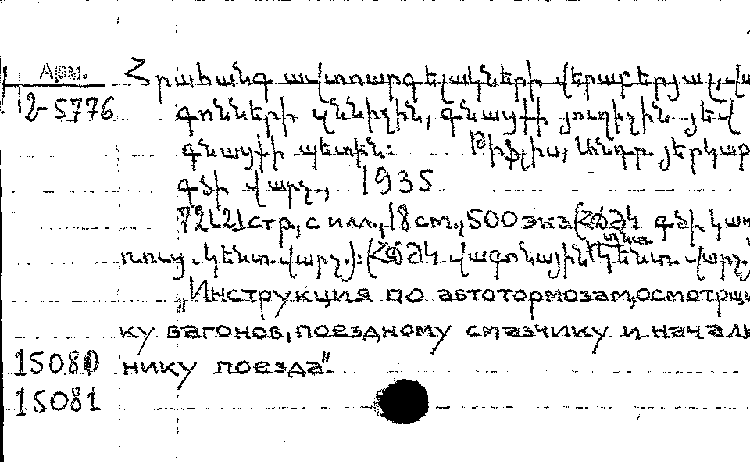 Арм.
Հրահանգ ավտոարգելակների վերաբերյալ, վա
2-5776
գոնների զննիչին, գնացքի յուղիչին յեվ
գնացքի պետին: Թիֆլիս, Անդր. յերկար
գծի վարչ., 1935
72[2]стр., с илл., 18 см., 500 экз. գծի
կենտ. վարչ.): վագոնային կենտ. վարչ.
„Инструкция по автотормозам, осмотрщи
ку вагонов, поездному смазчику и началь
15080 нику поезда".
15081